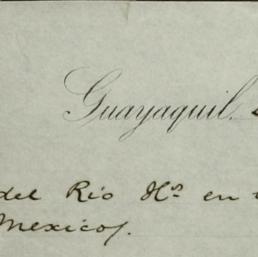 Guayaquil.
del Rio Hs en
Mexico/.